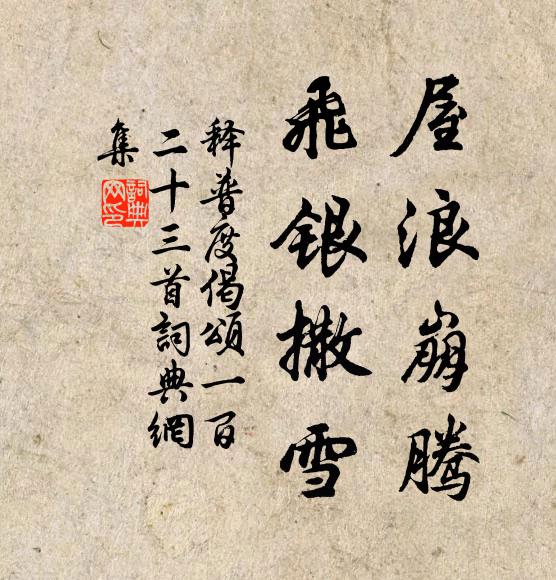 屋浪崩腾
飛銀撒雪
释普度偈頌一百
二十三首詞典網
集
詞典
网印